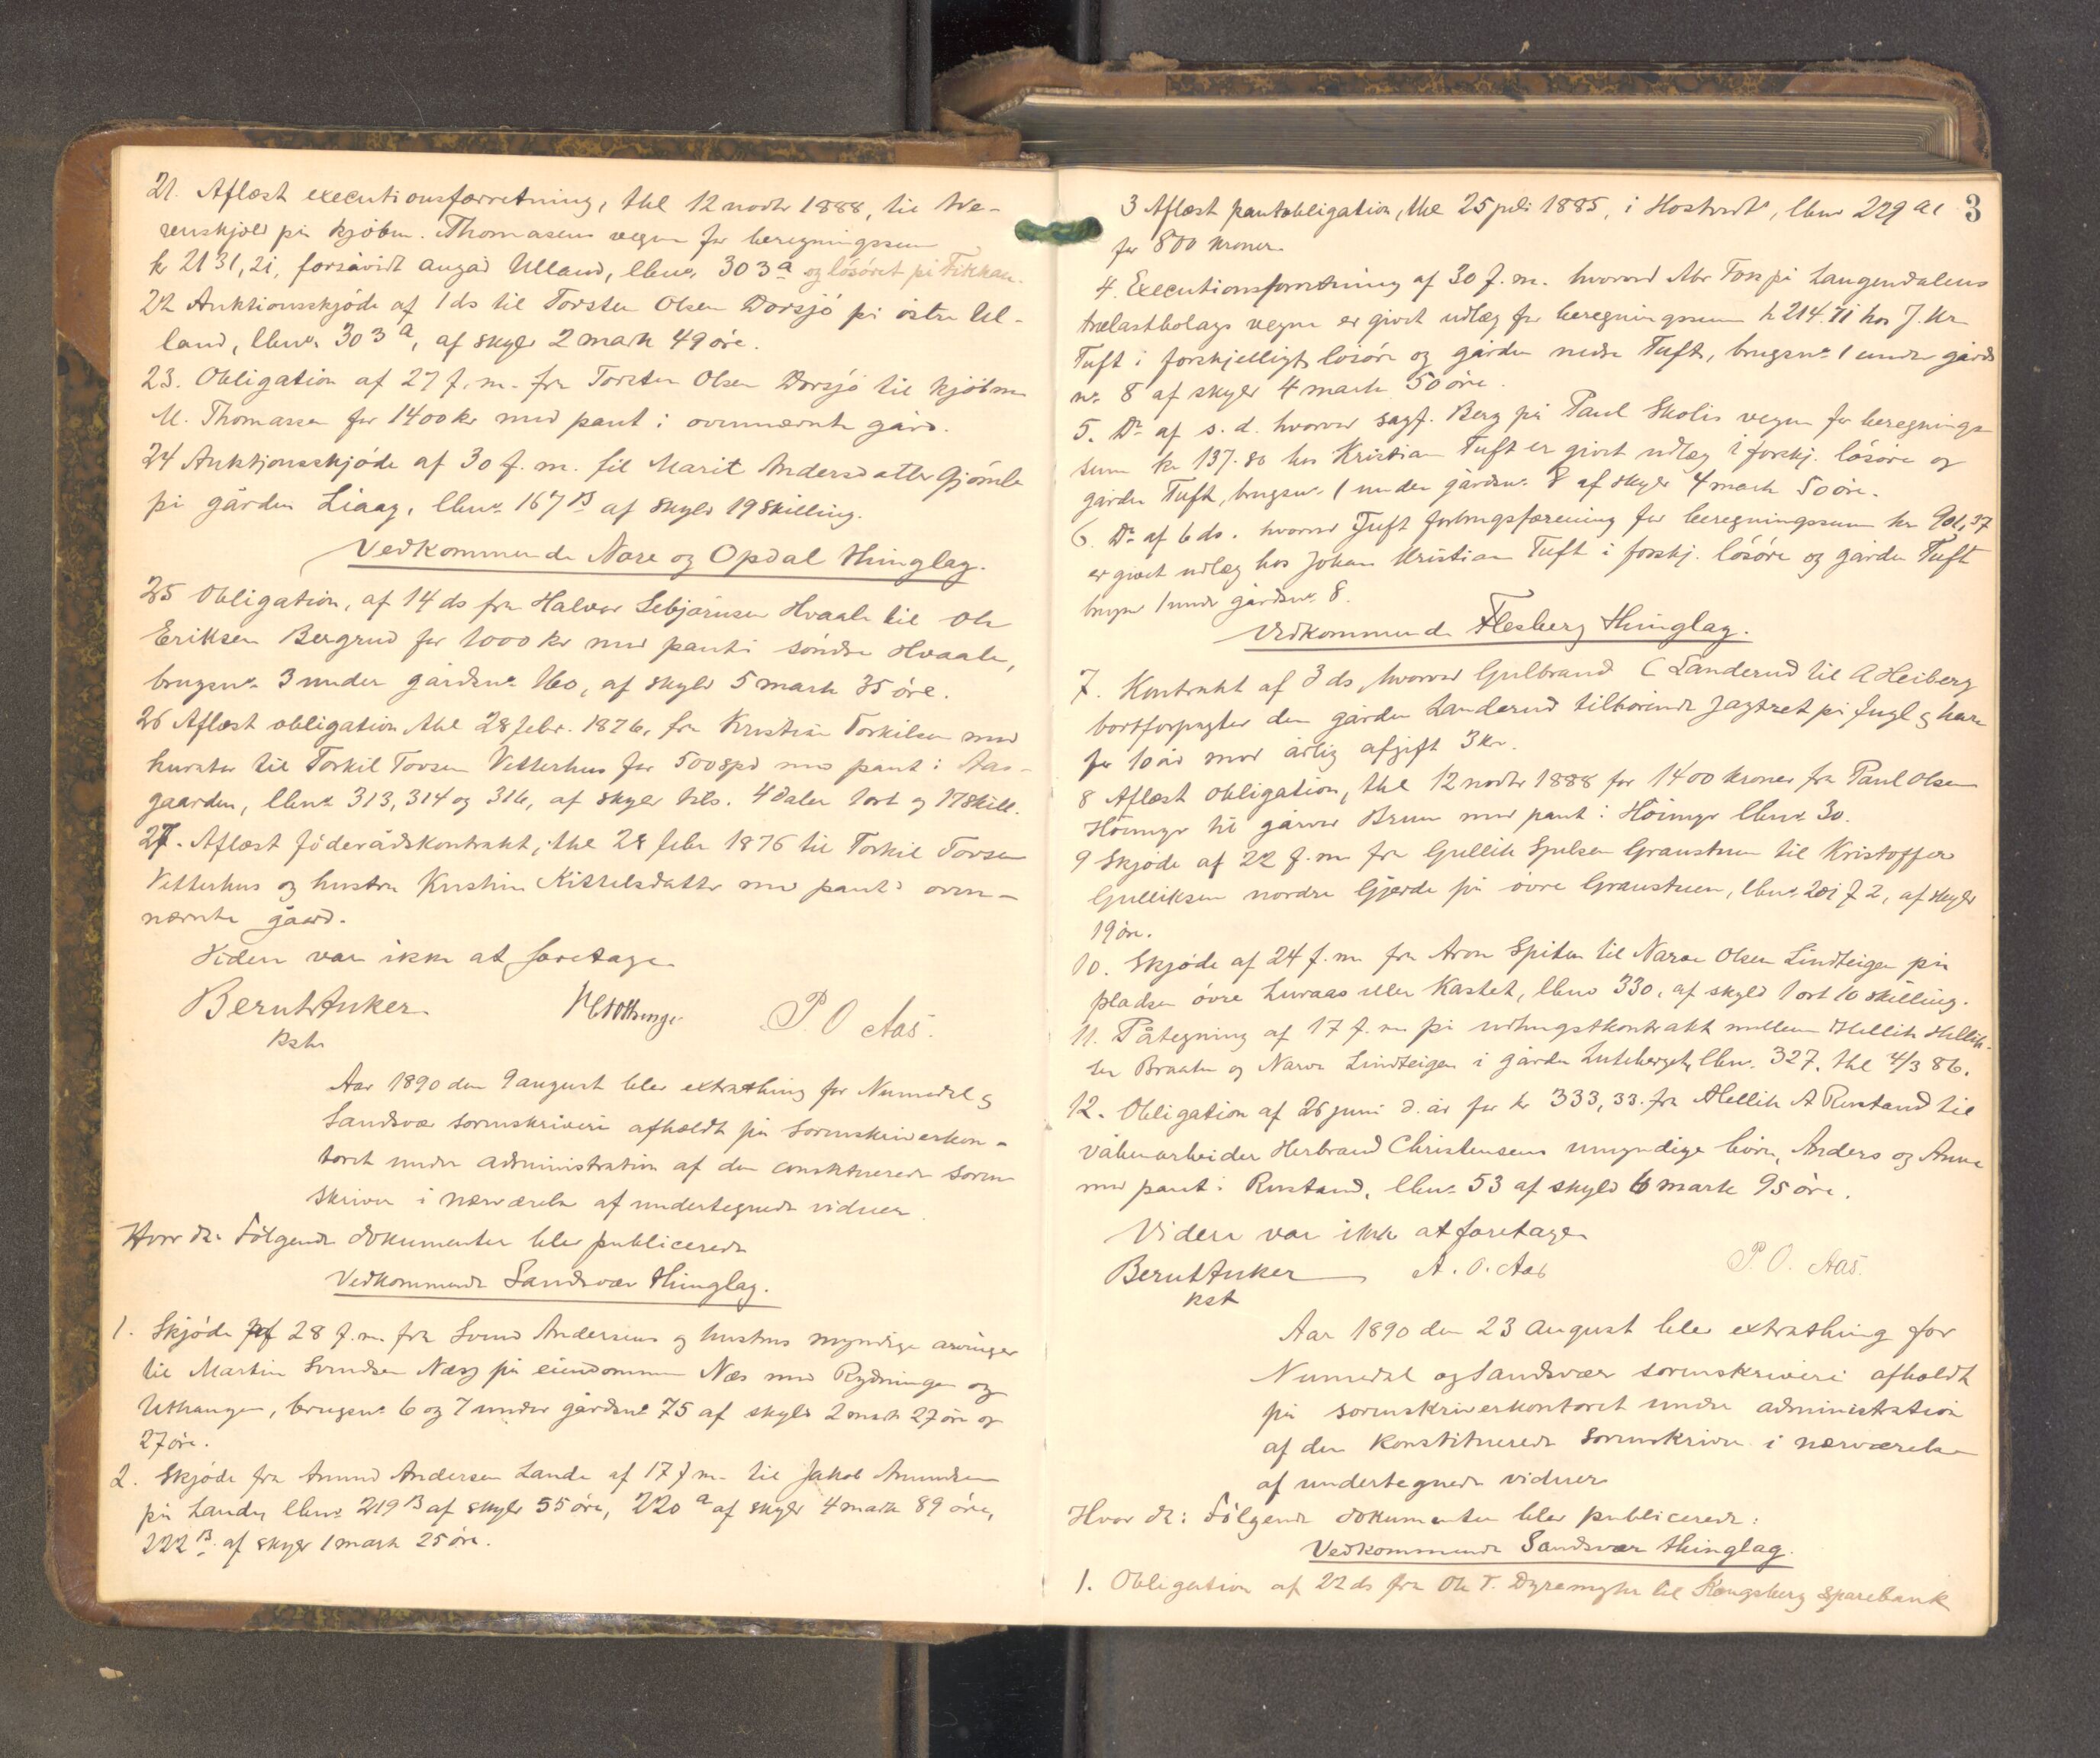 21. Aflæst executionsforretning, thl 12 novbr 1888, til We-
renskjold på kjøbm. Thomasens vegne for beregningssum
kr 2131,21, forsåvidt angår Ulland, lbnr. 303 a og løsøret på Fikkan.
22 Auktionsskjøde af 1 ds til Torsten Olsen Dorsjø på østre Ul-
land, lbnr. 303 a, af skyld 2 mark 49 øre.
23. Obligation af 27 f. m. fra Torsten Olsen Dorsjø til kjøbm
M. Thomassen for 1400 kr med pant i ovennævnte gård.
24 Auktionsskjøde af 30 f. m. til Marit Andersdatter Gjømle
på gården Liaag, lbnr. 167 B af skyld 19 skilling.
Vedkommende Nore og Opdal thinglag.
25 Obligation, af 14 ds fra Halvor Sebjørnsen Hvaale til Ole
Eriksen Bergrud for 1000 kr med pant i søndre Hvaale,
brugsnr. 3 under gårdsnr. 160, af skyld 5 mark 35 øre.
26 Aflæst obligation thl 28 febr. 1876, fra Kristine Torkilsen med
kurator til Torkil Tovsen Vetterhus for 500 spd med pant i Aas-
gaarden, lbnr 313, 314 og 316, af skyld tils. 4 daler 1 ort og 17 skill.
27. Aflæst føderådskontrakt, thl 28 febr 1876 til Torkil Tovsen
Vetterhus og hustru Kristine Kittelsdatter med pant i oven-
nævnte gaard.
Videre var ikke at foretage
Bernt Anker P. O Aas.
kst
Aar 1890 den 9 august blev extrathing for Numedal og
Sandsvær sorenskriveri afholdt på sorenskriverkon-
toret under administration af den constituerede soren
skriver i nærværelse af undertegnede vidner.
Hvor da: Følgende dokumenter blev publicerede
Vedkommende Sandsvær thinglag.
1. Skjøde af 28 f. m. fra Svend Andersens og hustrus myndige arvinger
til Martin Svendsen Næs på eiendommen Næs med Rydningen og
Uthaugen, brugsnr 6 og 7 under gårdsnr 75 af skyld 2 mark 27 øre og
27 øre.
2. Skjøde fra Amund Andersen Lande af 17 f m. til Jakob Amundsen
på Lande, lbnr. 219 B af skyld 55 øre, 220 a af skyld 4 mark 89 øre,
222 B. af skyld 1 mark 25 øre.
3
3 Aflæst pantobligation, thl 25 juli 1885, i Hostvedt, lbnr 229 a
for 800 kroner.
4. Executionsforretning af 30 f. m. hvorved Abr Foss på Laugendalens
trælastbolags vegne er givet udlæg for beregningssum kr 214.71 hos J. Kr
Tuft i forskjelligt løsøre og gården nedre Tuft, brugsnr. 1 under gårds
nr. 8 af skyld 4 mark 50 øre.
5. Do af s. d. hvorved sagf. Berg på Paul Skolis vegne for beregnings-
sum kr 137.80 hos Kristian Tuft er givet udlæg i forskj. løsøre og
gården Tuft, brugsnr. 1 under gårdsnr. 8 af skyld 4 mark 50 øre.
6. Do af 6 ds. hvorved Tuft forbrugsforening for beregningssum kr 901,37
er givet udlæg hos Johan Kristian Tuft i forskj. løsøre og gården Tuft
brugsnr 1 under gårdsnr. 8.
Vedkommende Flesberg thinglag.
7. Kontrakt af 3 ds, hvorved Gulbrand C Landerud til A Heiberg
bortforpagter den gården Landerud tilhørende jagtret på fugl og hare
for 10 år mod årlig afgift 3 kr.
8 Aflæst obligation, thl 12 novbr 1888 for 1400 kroner fra Paul Olsen
Høimyr til garver Bruun med pant i Høimyr lbnr. 30.
9 Skjøde af 22 f. m. fra Gullik Gulliksen Graustuen til Kristoffer
Gulliksen nordre Gjærde på øvre Graustuen, af skyld
19 øre.
10. Skjøde af 24 f. m. fra Aron Spiten til Narve Olsen Lindteigen på
pladsen øvre Luraas eller Kastet, lbnr 330, af skyld 1 ort 10 skilling.
11. Påtegning af 17 f. m. på udhugstkontrakt mellem Hellik Hellik-
sen Braaten og Narve Lindteigen i gården Luteberget, lbnr. 327. thl 4/3 86.
12. Obligation af 26 juni d. år for kr 333,33. fra Hellik A Rustand til
våbenarbeider Herbrand Christensens umyndige børn, Anders og Anne
med pant i Rustand, lbnr. 53 af skyld 6 mark 95 øre.
Videre var ikke at foretage
Bernt Anker A. O. Aas P. O. Aas.
kst
Aar 1890 den 23 august blev extrathing for
Numedal og Sandsvær sorenskriveri afholdt
på sorenskriverkontoret under administration
af den konstituerede sorenskriver i nærværelse
af undertegnede vidner
Hvor da: Følgende dokumenter blev publicerede:
Vedkommende Sandsvær thinglag.
1. Obligation af 22 ds fra Ole T. Dyremyhr til Kongsberg sparebank